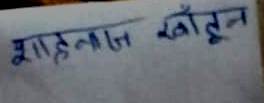 शाहनाज खाँतून